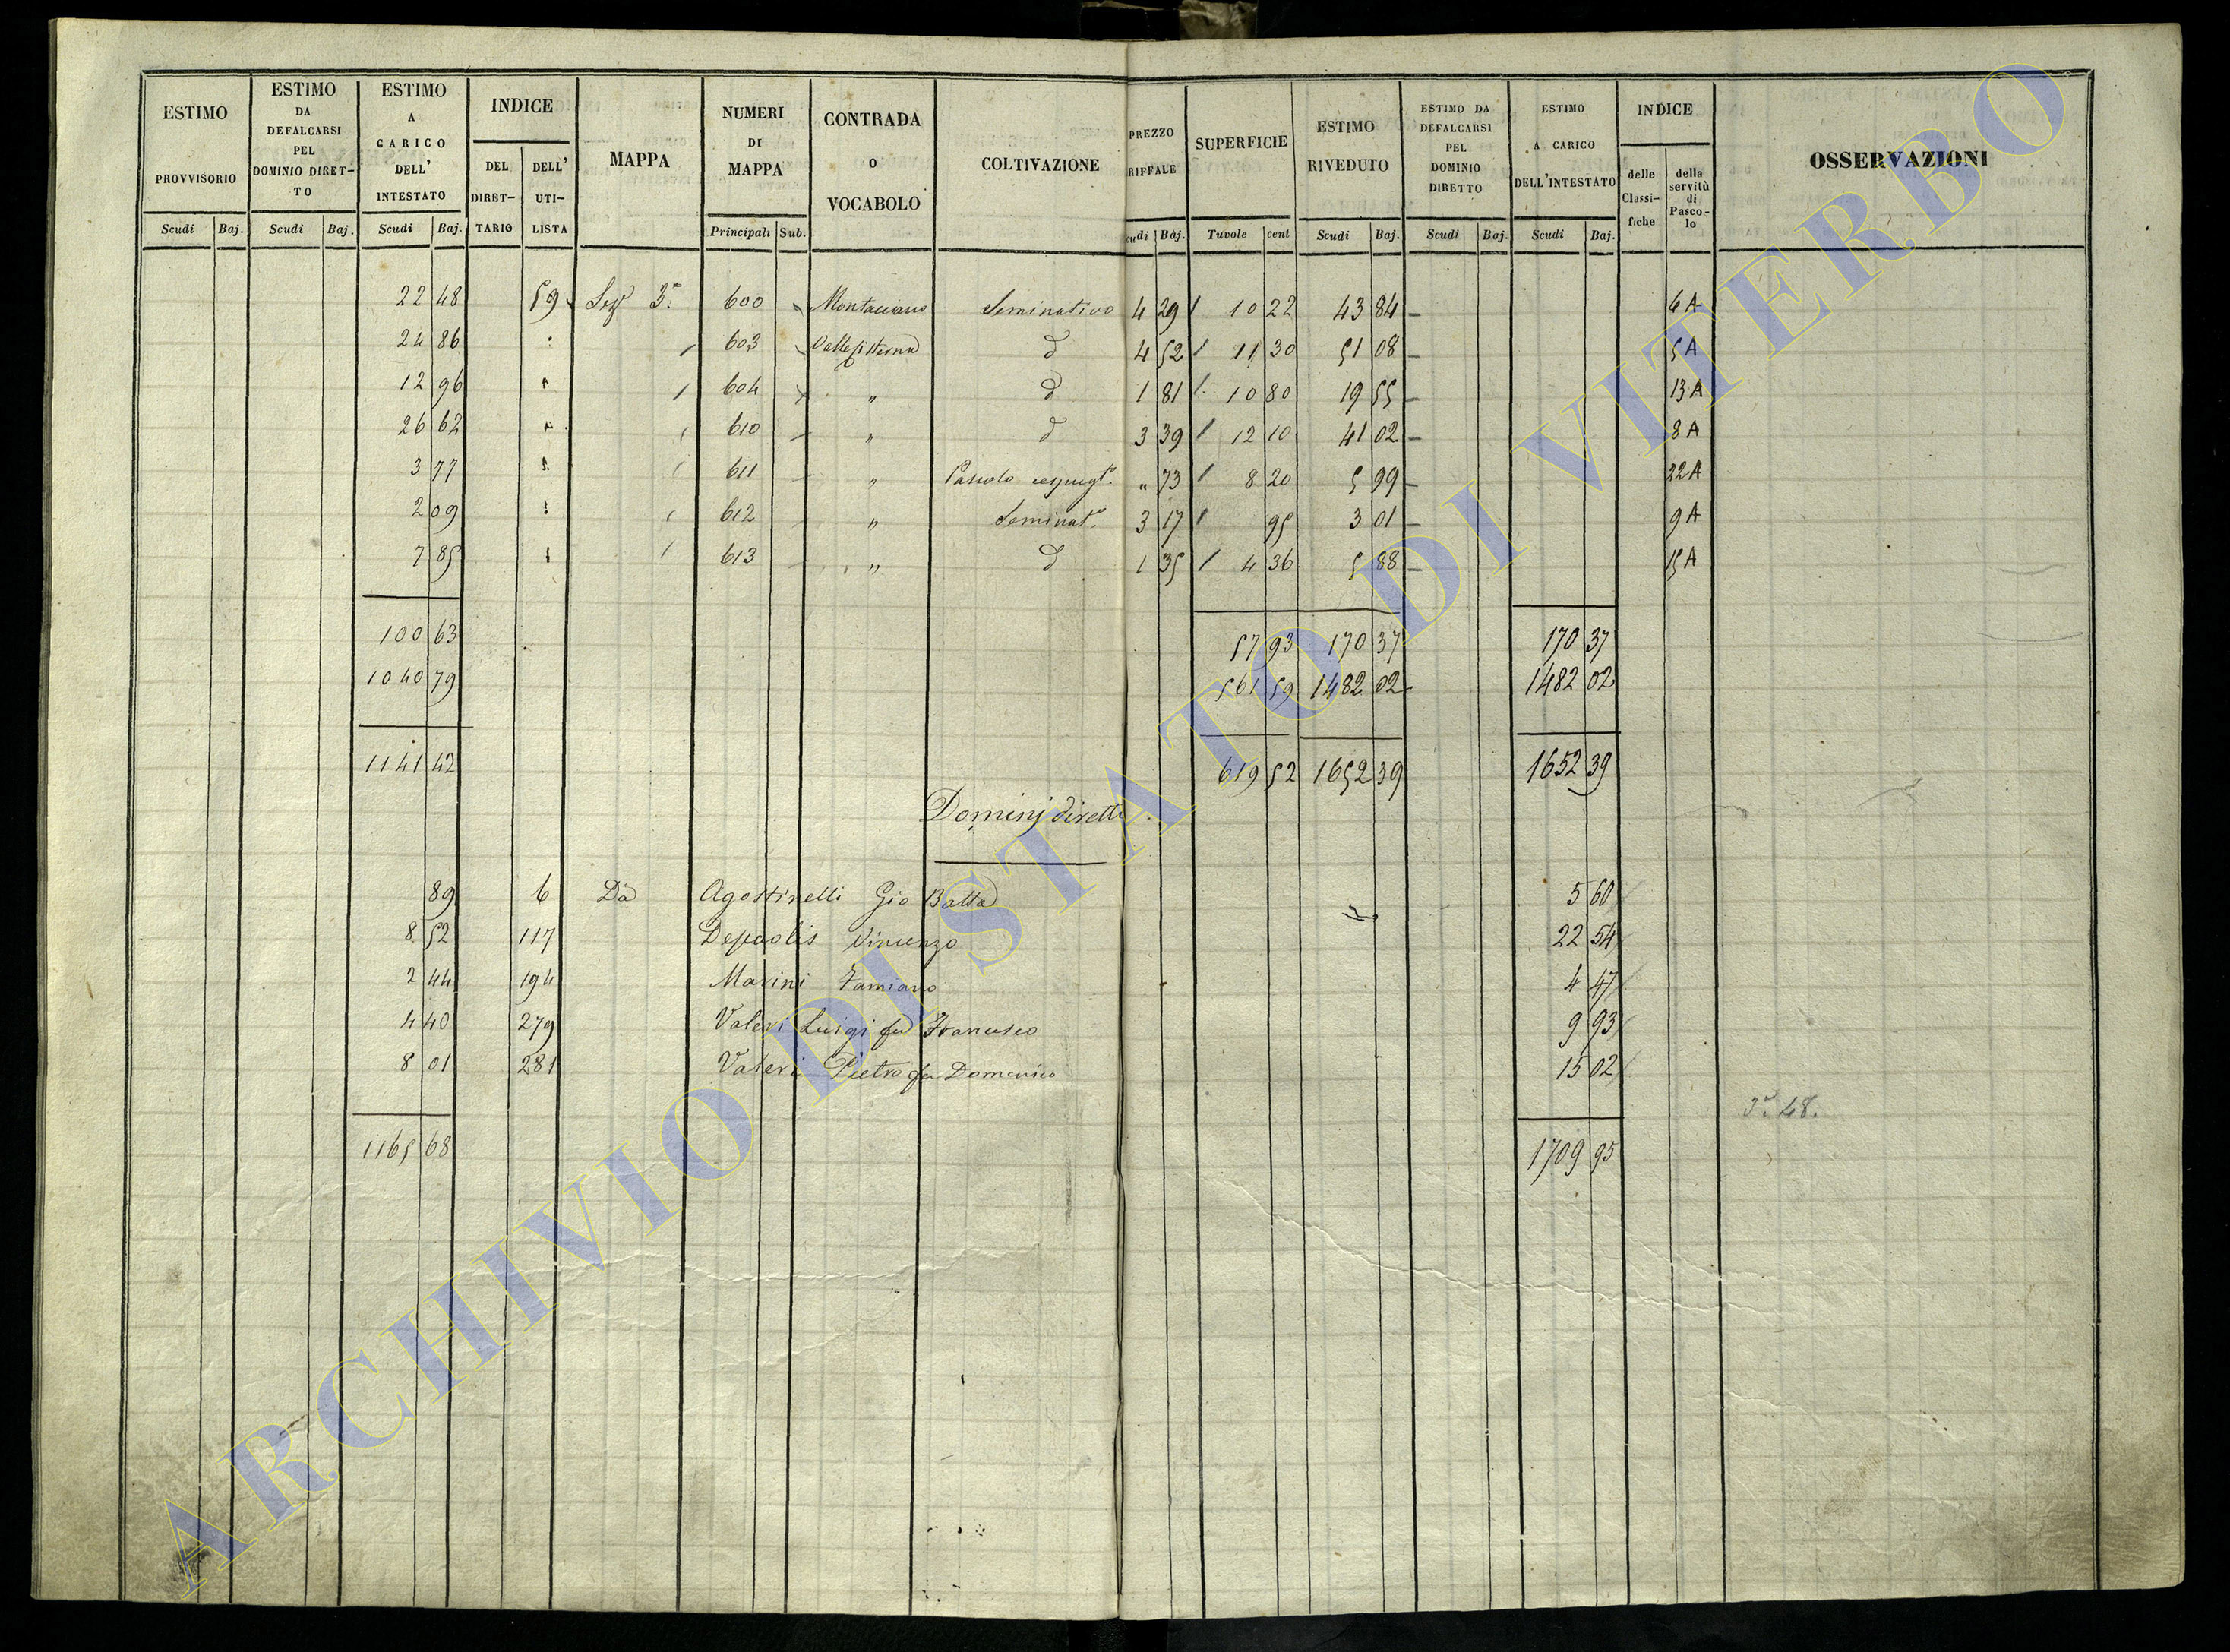 ESTIMO PROVVISORIO | ESTIMO DA DEFALCARSI PEL DOMINIO DIRET-TO | ESTIMO A CARICO DELL' INTESTATO | INDICE DEL DIRET-TARIO | DELL' UTI-LISTA | MAPPA | NUMERI DI MAPPA | CONTRADA O VOCABOLO | COLTIVAZIONE | PREZZO RIFFALE | SUPERFICIE | ESTIMO RIVEDUTO | ESTIMO DA DEFALCARSI PEL DOMINIO DIRETTO | ESTIMO A CARICO DELL'INTESTATO | INDICE delle Classi-fiche | della servitù di Pasco-lo | OSSERVAZIONI
Scudi Baj. Scudi Baj. Scudi Baj. Principali Sub. cudi Baj. Tavole cent Scudi Baj. Scudi Baj. Scudi Baj.
22 48 59 Sez 3a 600 Seminativo 4 29 10 22 43 84 6 A
24 86 603 d 4 52 11 30 51 08 5 A
12 96 604 " d 1 81 10 80 19 55 13 A
26 62 610 " d 3 39 12 10 41 02 8 A
3 77 611 " Pascolo cespugto " 73 8 20 5 99 22 A
2 09 612 " Seminato 3 17 95 3 01 9 A
7 85 613 " d 1 35 4 36 5 88 15 A
100 63 57 93 170 37 170 37
1040 79 561 59 1482 02 1482 02
1141 42 619 52 1652 39 1652 39
Dominj diretti
89 6 Da Agostinelli Gio Batta 5 60
8 52 117 Depaolis Vincenzo 22 54
2 44 194 Marini Famiano 4 47
4 40 279 Valeri Luigi fu Francesco 9 93
8 01 281 Valeri Pietro fu Domenico 15 02
3a 48.
1165 68 1709 95
ARCHIVIO DI STATO DI VITERBO